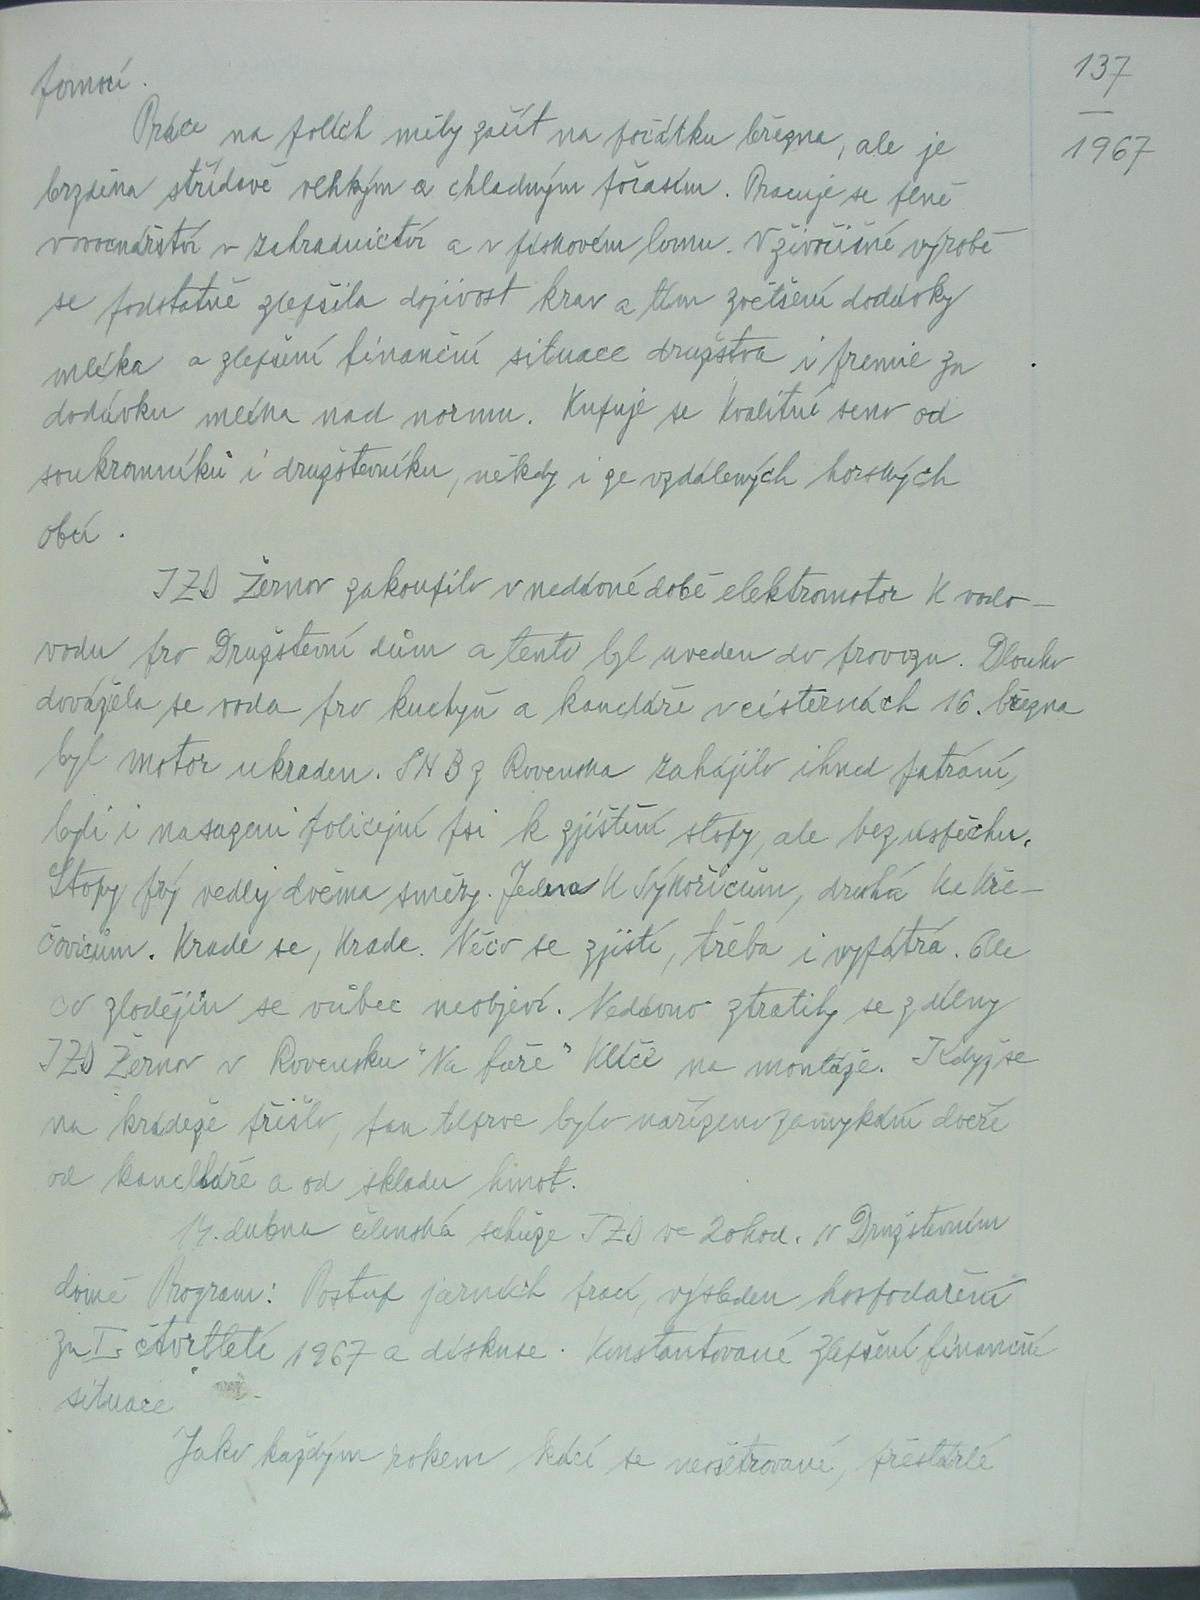 137
1967
pomocí.
Práce na polích měly začít na počátku března, ale je
brzděna střídavě vlhkým a chladným počasím. Pracuje se plně
v ovocnářství v zahradnictví a v pískovém lomu. V živočišné výrobě
se podstatně zlepšila dojivost krav a tím zvětšení dodávky
mléka a zlepšení finanční situace družstva i premie za
dodávku mléka nad normu. Kupuje se kvalitní seno od
soukromníků i družstevníku, někdy i ze vzdálených horských
obcí.
JZD Žernov zakoupilo v nedávné době elektromotor k vodo-
vodu pro Družstevní dům a tento byl uveden do provozu. Dlouho
dovážela se voda pro kuchyň a kanceláře v cisternách 16. března
byl motor ukraden. SNB z Rovenska zahájilo ihned pátrání,
byli i nasazeni policejní psi k zjištění stopy, ale bez úspěchu.
Stopy prý vedly dvěma směry. Jedna k Sýkořicům, druhá ke Kře-
čovicům. Krade se, krade. Něco se zjistí, třeba i vypátrá. Ale
co zlodějin se vůbec neobjeví. Nedávno ztratily se z dílny
JZD Žernov v Rovensku "Na faře" klíče na montáže. Když se
na krádeže přišlo, pak teprve bylo nařízeno zamykání dveří
od kanceláře a od skladu hmot.
14. dubna členská schůze JZD ve 20 hod. v Družstevním
domě Program: Postup jarních prací, výsledek hospodaření
za I. čtvrtletí 1967 a diskuse. Konstantované zlepšení finanční
situace
Jako každým rokem kácí se neošetřované, přestárlé